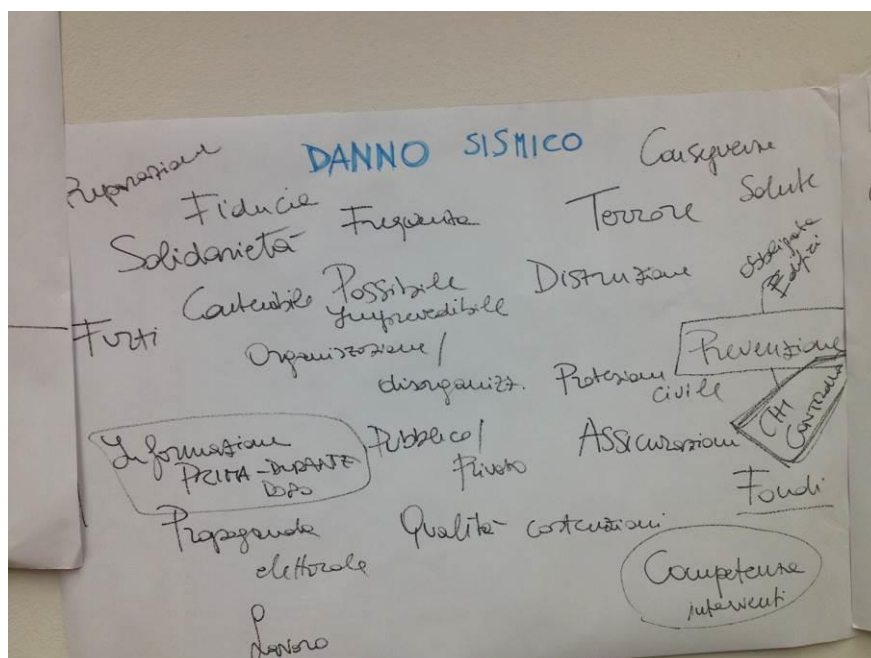 DANNO SISMICO
Conseguenze
Fiducia
Frequenza
Terrore
Salute
Solidarietà
Contenibile
Possibile
Imprevedibile
Distruzione
obbligata
Edifici
Furti
Organizzazione/
disorganizz.
Protezione
civile
Prevenzione
CHI
CONTROLLA
Informazione
PRIMA-DURANTE
DOPO
Pubblico/
Privato
Assicurazioni
Fondi
Propaganda
elettorale
Qualità costruzioni
Competenza
interventi
Lavoro